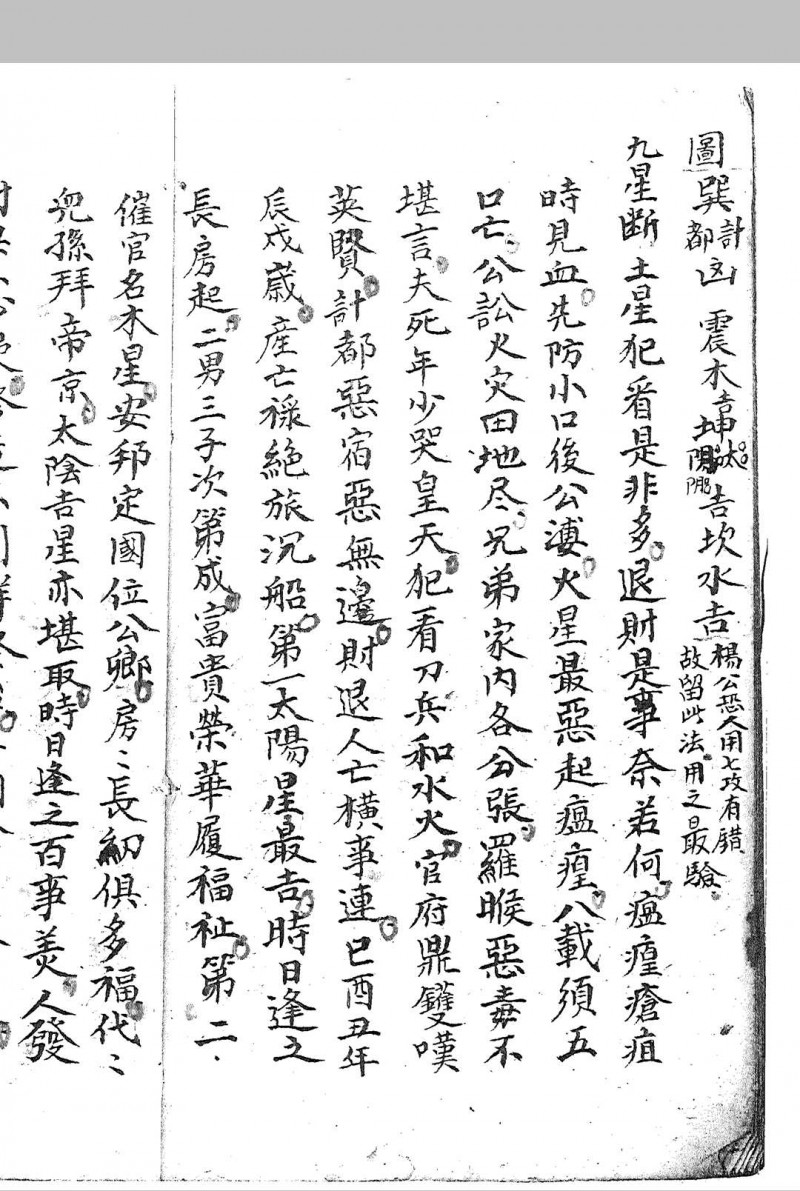 圖 巽計都凶 震木吉坤太陽吉坎水吉 楊公恐人用七政有錯
故留此法用之最驗
九星断土星犯看是非多退財是事奈若何瘟瘽瘡疽
時見血先防小口後公婆火星最惡起瘟瘽八載須五
口亡公訟火灾田地尽兄弟家内各分張羅睺惡毒不
堪言夫死年少哭皇天犯看刀兵和水火官府鼎鑊嘆
英賢計都惡宿惡無邊財退人亡横事連巳酉丑年
辰戌歳産亡禄絶旅沉船第一太陽星最吉時日逢之
長房起二男三子次第成富貴荣華履福祉第二
催官名木星安邦定國位公卿房〻長幼俱多福代〻
兇孫拜帝京太陰吉星亦堪取時日逢之百事美人發